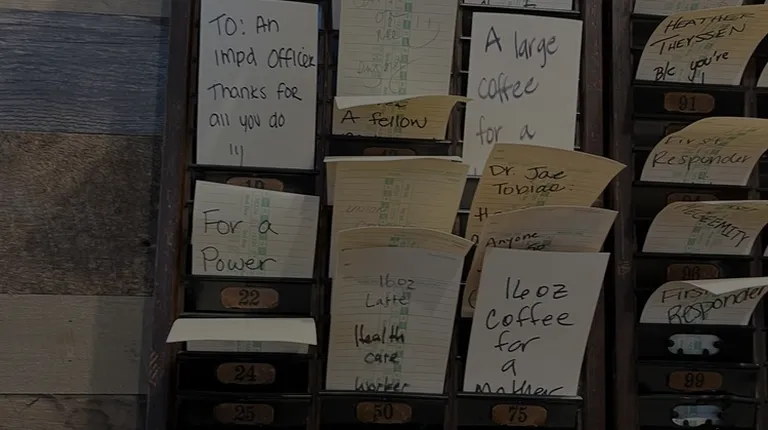 TO: An
Impd Officer
Thanks for
all you do
!!!
For a
Power
22
24
25
A fellow
16oz
Latte
Health
care
Worker
50
A large
coffee
for a
Dr. Jae
Anyone
16oz
Coffee
for
a
Mother
75
HEATHER
THEYSSEN
B/c you're
91
First
Responder
First
Responder
99